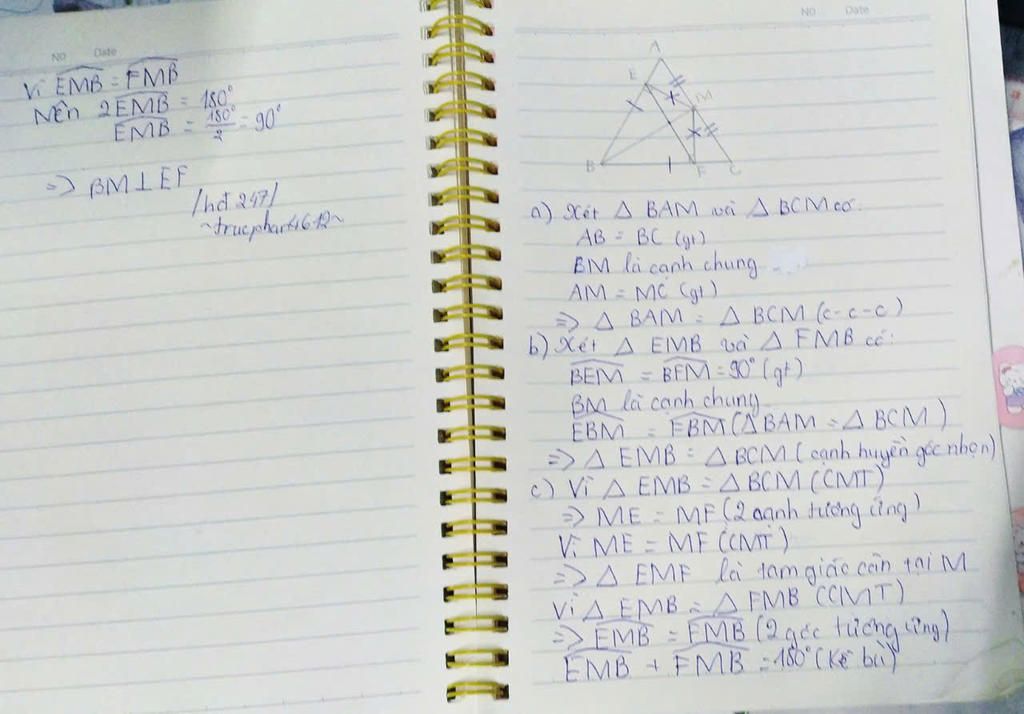 No Date
Vì EMB = FMB
Nên 2EMB = 180°
EMB = 180°/2 = 90°
=> BM⊥EF
/hđ247/
~trucphan4612~
No Date
A
E
M
B
F
C
a) Xét △ BAM và △ BCM có:
AB = BC (gt)
BM là cạnh chung
AM = MC (gt)
=> △ BAM = △ BCM (c-c-c)
b) Xét △ EMB và △ FMB có:
BEM = BFM = 90° (gt)
BM là cạnh chung
EBM = FBM (△BAM = △BCM)
=> △ EMB = △BCM (cạnh huyền góc nhọn)
c) Vì △ EMB = △BCM (CMT)
=> ME = MF (2 cạnh tương ứng)
Vì ME = MF (CMT)
=> △ EMF là tam giác cân tại M
Vì △ EMB = △ FMB (CMT)
=> EMB = FMB (2 góc tương ứng)
EMB + FMB = 180° (kề bù)